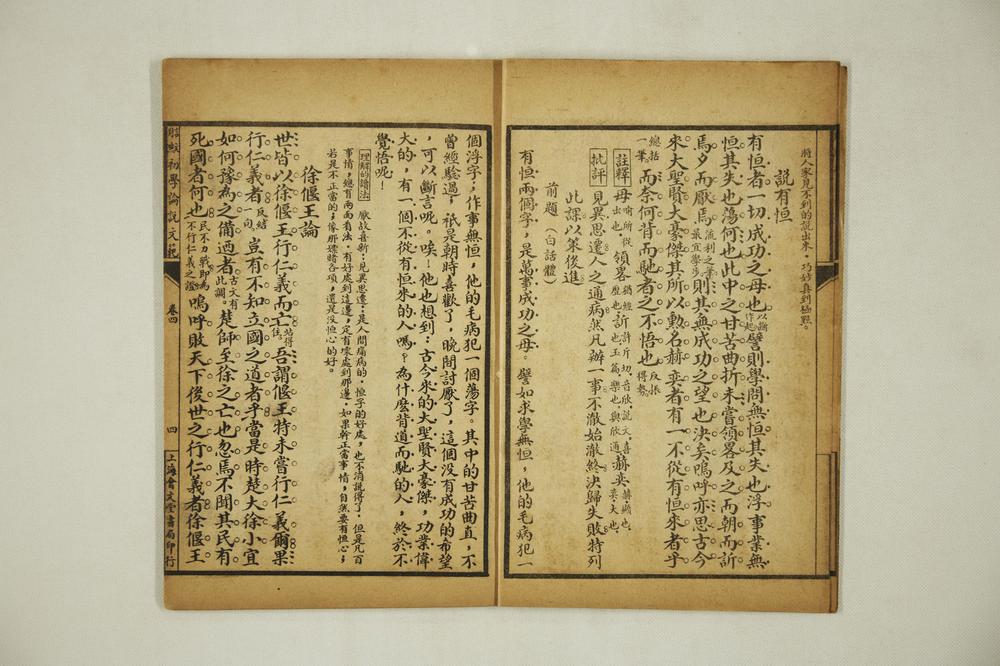 將人家見不到的說出來．巧妙真到極點。
說有恒
有恒者一切成功之母也以斷作起譬則學問無恒其失也浮事業無
恒其失也蕩何也此中之甘苦曲折未嘗領畧及之而朝而訢
焉夕而厭焉流利之筆最宜學步則其無成功之望也決矣嗚呼亦思古今
來大聖賢大豪傑其所以勳名赫奕者有一不從有恒來者乎
總括一筆而奈何背而馳者之不悟也反振得勢
註釋 母喻所從出也領畧猶經歷也訢訢斤切音欣說文喜也篇樂也與欣通赫奕赫顯也奕大也
批評 見異思遷人之通病然凡辦一事不澈始澈終決歸失敗特列
此課以策後進
前題（白話體）
有恒兩個字，是萬事成功之母。譬如求學無恒，他的毛病犯一
個浮字；作事無恒，他的毛病犯一個蕩字。其中的甘苦曲直，不
曾經驗過，祇是朝時喜歡了，晚間討厭了，這個沒有成功的希望
，可以斷言呢。唉！他也想到：古今來的大聖賢大豪傑，功業偉
大的，有一個不從有恒來的人嗎？為什麽背道而馳的人，終於不
覺悟呢！
理解的讀法 厭故喜新；見異思遷；是人間痛病的．恒字的好處，也不消說得了．但是凡百
事情，總有兩面看法．有好處到這邊，定有壞處到那邊．如果幹正當事情，自然要有恒心；
若是不正當的；像那嫖賭各項，還是沒恒心的好。
徐偃王論
世皆以徐偃王行仁義而亡站得住吾謂偃王特未嘗行仁義爾果
行仁義者反結一句豈有不知立國之道者乎當是時楚大徐小宜
如何豫為之備迺者古文有此調楚師至徐之亡也忽焉不聞其民有
死國者何也民不力戰即為不行仁義之證嗚呼敗天下後世之行仁義者徐偃王
初學論說文範
卷四
四
上海會文堂書局印行